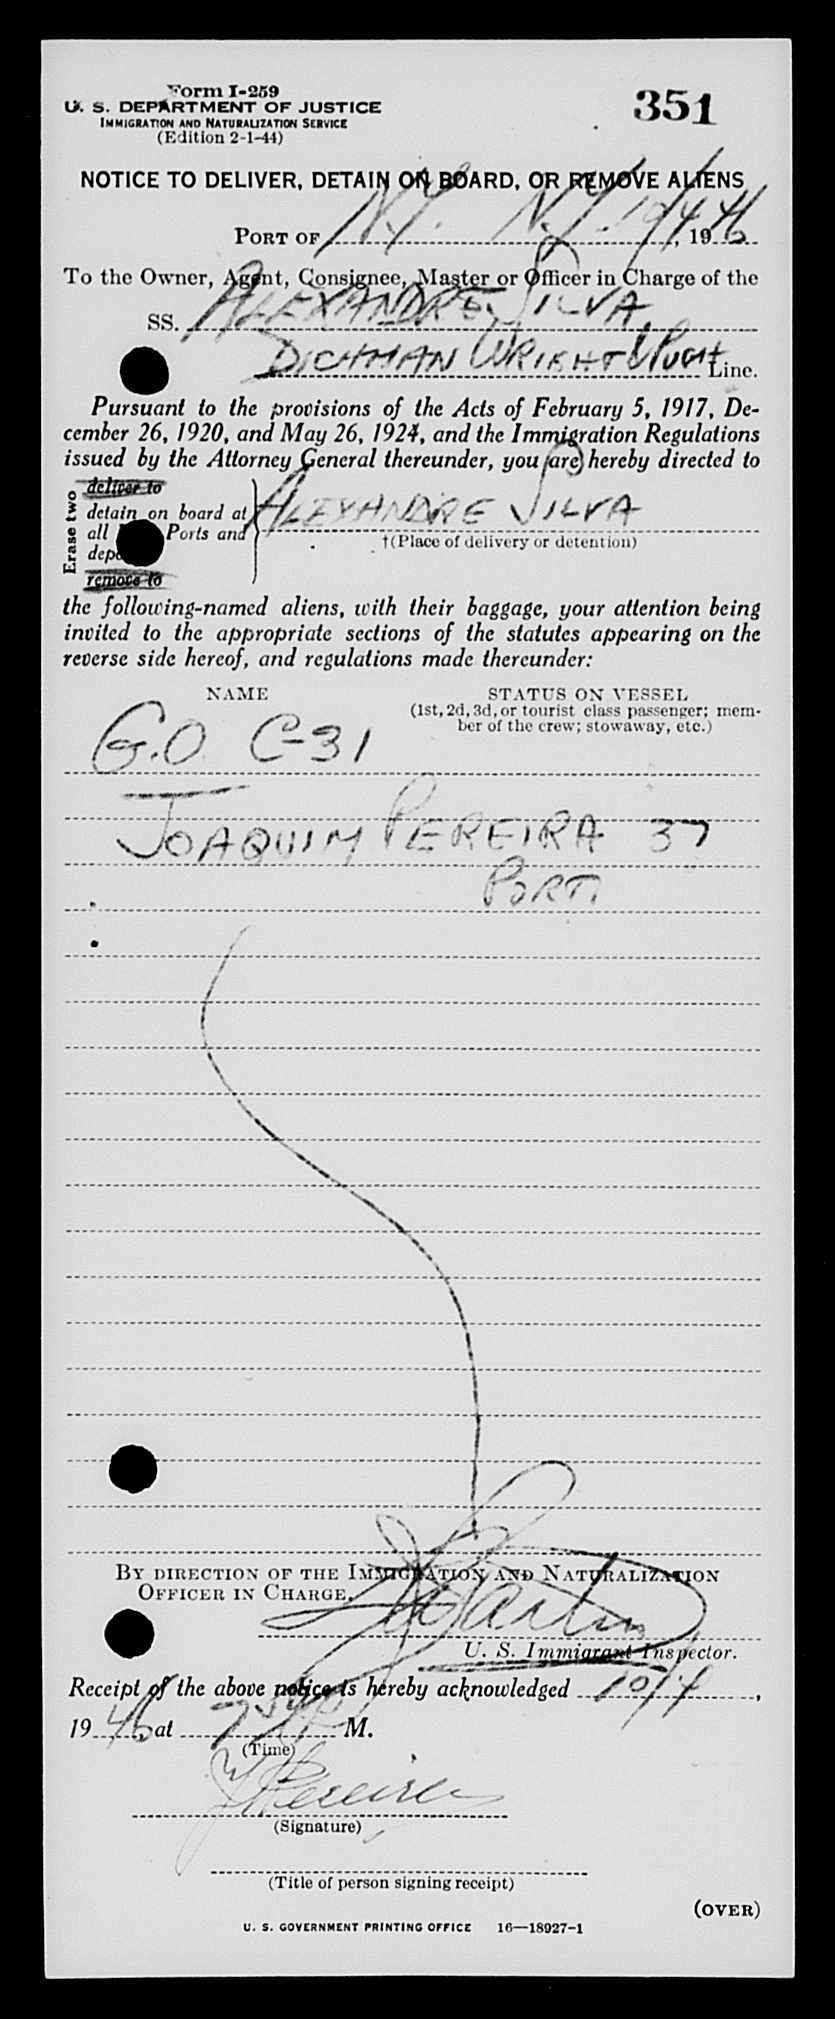 Form I-259
U. S. DEPARTMENT OF JUSTICE
IMMIGRATION AND NATURALIZATION SERVICE
(Edition 2-1-44)
351
NOTICE TO DELIVER, DETAIN ON BOARD, OR REMOVE ALIENS
PORT OF N.Y. N.Y. 10/4, 1946
To the Owner, Agent, Consignee, Master or Officer in Charge of the
SS. ALEXANDRE SILVA
DICHMAN WRIGHT & PUGH Line.
Pursuant to the provisions of the Acts of February 5, 1917, De-
cember 26, 1920, and May 26, 1924, and the Immigration Regulations
issued by the Attorney General thereunder, you (are) hereby directed to
Erase two
deliver to
detain on board at
all Ports and
remove to
ALEXANDRE SILVA
†(Place of delivery or detention)
the following-named aliens, with their baggage, your attention being
invited to the appropriate sections of the statutes appearing on the
reverse side hereof, and regulations made thereunder:
NAME
STATUS ON VESSEL
(1st, 2d, 3d, or tourist class passenger; mem-
ber of the crew; stowaway, etc.)
G.O C-31
JOAQUIM PEREIRA 37
PORT
BY DIRECTION OF THE IMMIGRATION AND NATURALIZATION
OFFICER IN CHARGE.
U. S. Immigrant Inspector.
Receipt of the above notice is hereby acknowledged 10/4,
1946, at M.
(Time)
J Pereira
(Signature)
(Title of person signing receipt)
(OVER)
U. S. GOVERNMENT PRINTING OFFICE 16—18927-1